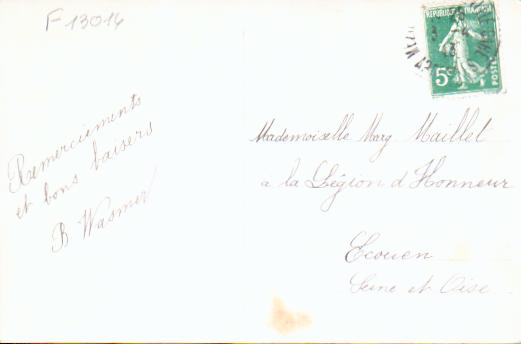 F 13014
REPUBLIQUE FRANÇAISE
5c
POSTES
Remerciements
et bons baisers
B Wasmer
Mademoiselle Marg Maillet
a la Légion d'Honneur
Ecouen
Seine et Oise